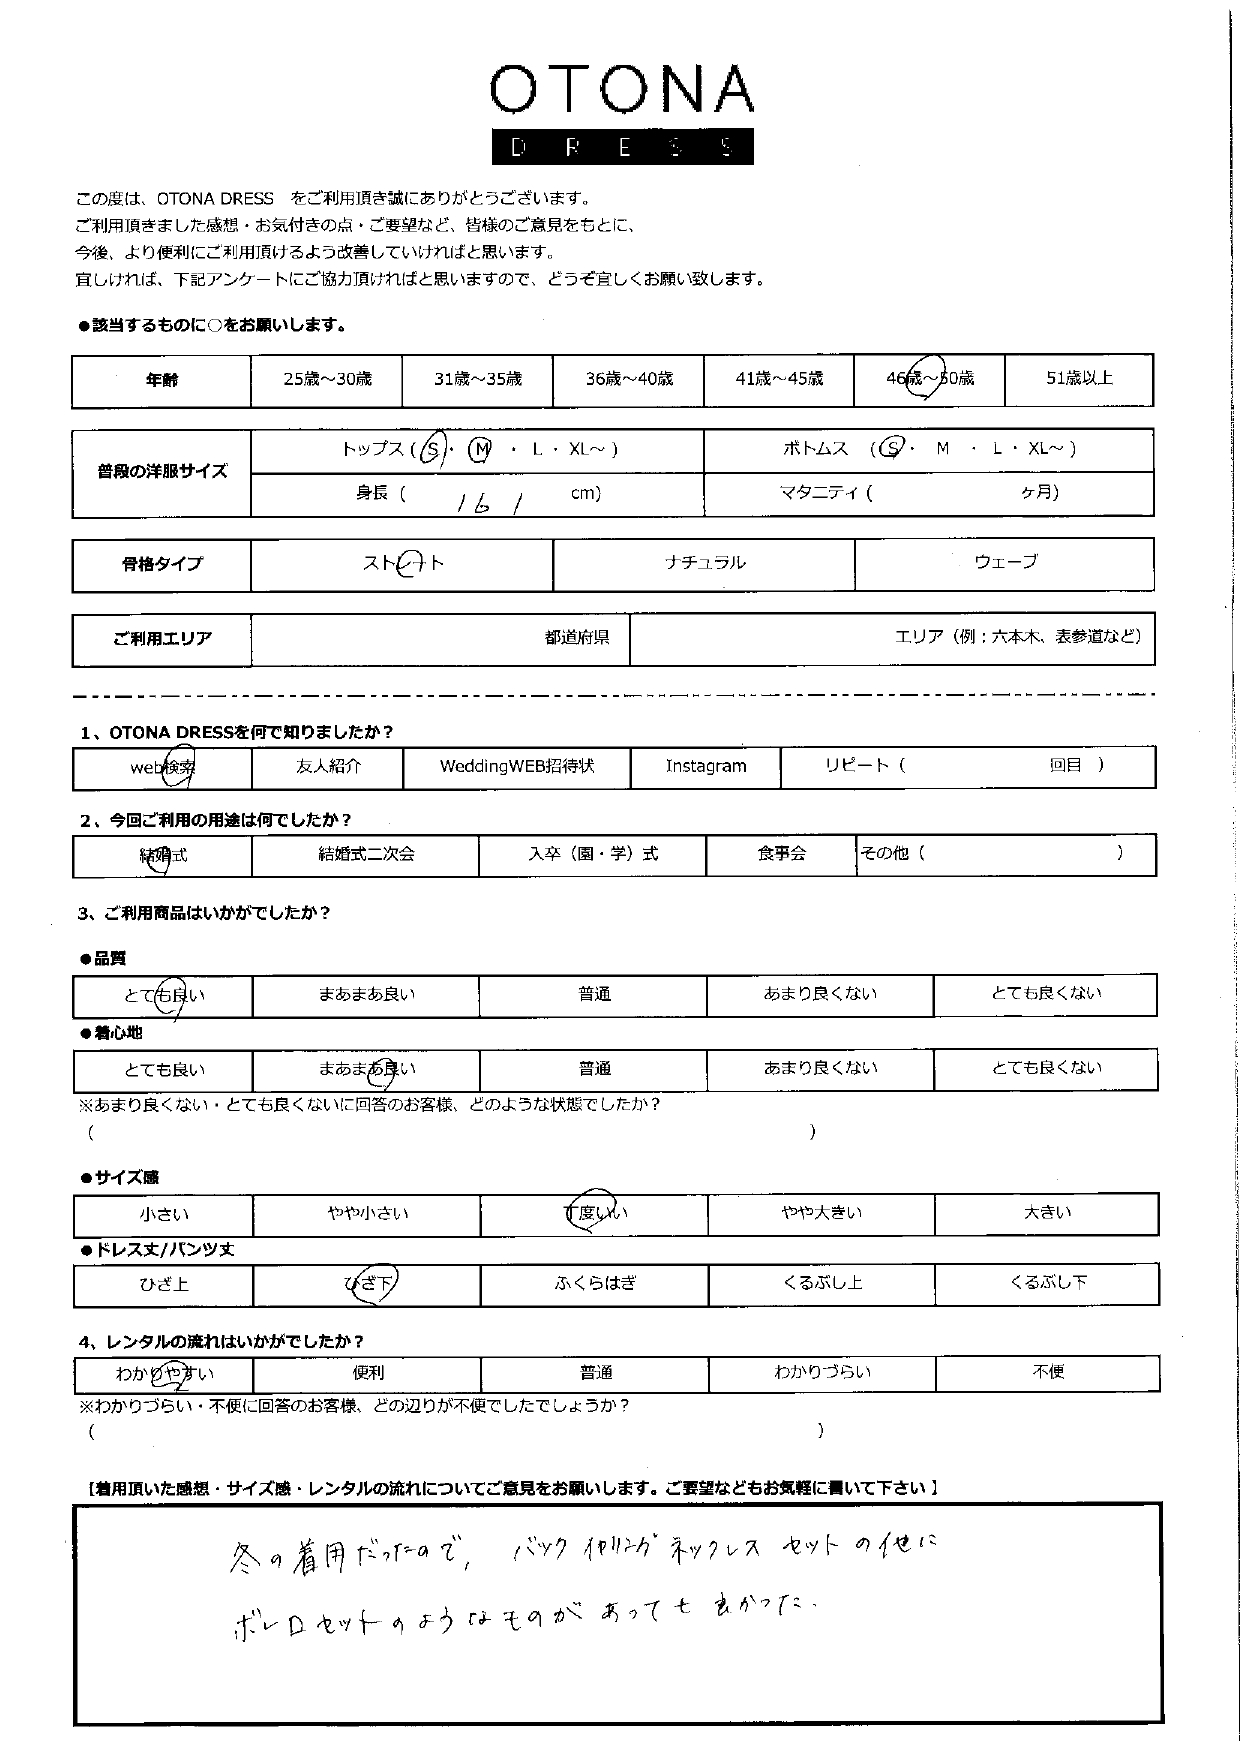 OTONA
DRESS
この度は、OTONA DRESS　をご利用頂き誠にありがとうございます。
ご利用頂きました感想・お気付きの点・ご要望など、皆様のご意見をもとに、
今後、より便利にご利用頂けるよう改善していければと思います。
宜しければ、下記アンケートにご協力頂ければと思いますので、どうぞ宜しくお願い致します。
●該当するものに○をお願いします。
年齢 25歳～30歳 31歳～35歳 36歳～40歳 41歳～45歳 46歳～50歳 51歳以上
普段の洋服サイズ トップス ( S ・ M ・ L ・ XL～ ) ボトムス ( S ・ M ・ L ・ XL～ )
身長 ( 161 cm) マタニティ ( ヶ月)
骨格タイプ ストレート ナチュラル ウェーブ
ご利用エリア 都道府県 エリア（例：六本木、表参道など）
1、OTONA DRESSを何で知りましたか？
web検索 友人紹介 WeddingWEB招待状 Instagram リピート ( 回目 )
2、今回ご利用の用途は何でしたか？
結婚式 結婚式二次会 入卒（園・学）式 食事会 その他 ( )
3、ご利用商品はいかがでしたか？
●品質
とても良い まあまあ良い 普通 あまり良くない とても良くない
●着心地
とても良い まあまあ良い 普通 あまり良くない とても良くない
※あまり良くない・とても良くないに回答のお客様、どのような状態でしたか？
( )
●サイズ感
小さい やや小さい 丁度いい やや大きい 大きい
●ドレス丈/パンツ丈
ひざ上 ひざ下 ふくらはぎ くるぶし上 くるぶし下
4、レンタルの流れはいかがでしたか？
わかりやすい 便利 普通 わかりづらい 不便
※わかりづらい・不便に回答のお客様、どの辺りが不便でしたでしょうか？
( )
【着用頂いた感想・サイズ感・レンタルの流れについてご意見をお願いします。ご要望などもお気軽に書いて下さい】
冬の着用だったので, バック イヤリング ネックレス セットの他に
ボレロセットのようなものがあっても良かった.